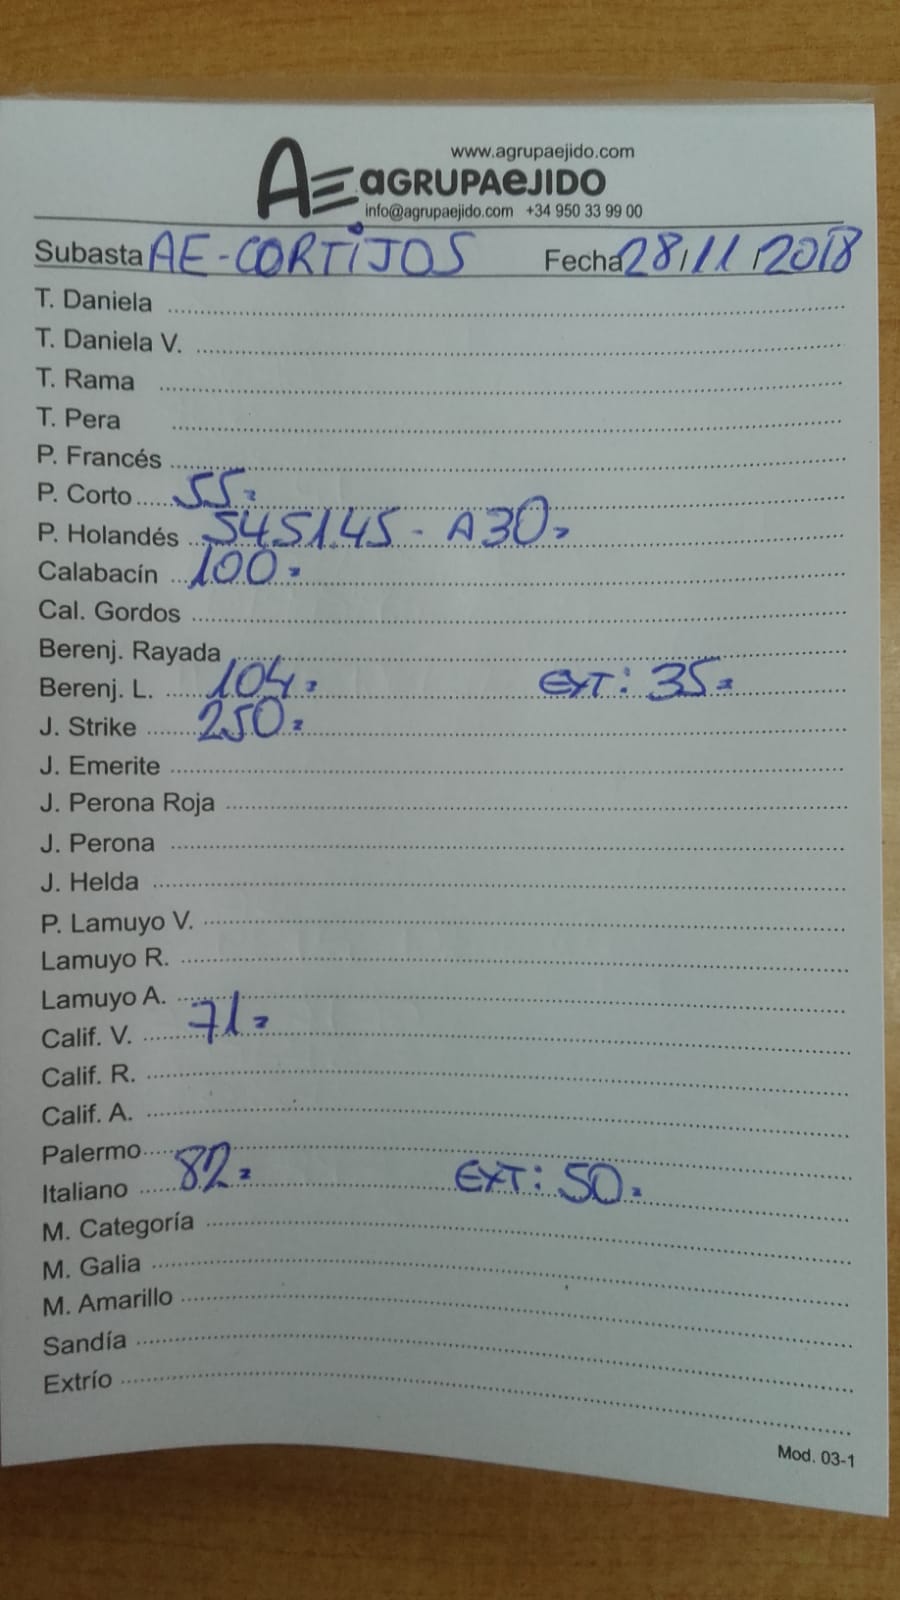 www.agrupaejido.com
AE aGRUPAeJIDO
info@agrupaejido.com +34 950 33 99 00
Subasta AE-CORTIJOS Fecha 28/11/2018
T. Daniela
T. Daniela V.
T. Rama
T. Pera
P. Francés
P. Corto 55=
P. Holandés 54.51.45 - A30=
Calabacín 100=
Cal. Gordos
Berenj. Rayada
Berenj. L. 104= EXT: 35=
J. Strike 250=
J. Emerite
J. Perona Roja
J. Perona
J. Helda
P. Lamuyo V.
Lamuyo R.
Lamuyo A.
Calif. V. 71=
Calif. R.
Calif. A.
Palermo
Italiano 82= EXT: 50=
M. Categoría
M. Galia
M. Amarillo
Sandía
Extrío
Mod. 03-1